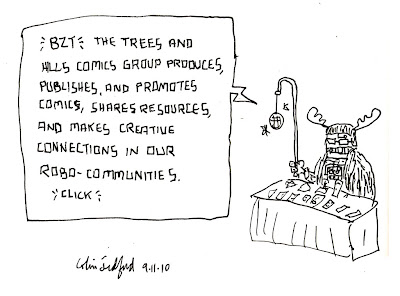 BZT THE TREES AND
HILLS COMICS GROUP PRODUCES,
PUBLISHES, AND PROMOTES
COMICS, SHARES RESOURCES,
AND MAKES CREATIVE
CONNECTIONS IN OUR
ROBO-COMMUNITIES.
CLICK
Colin Tedford 9.11.10